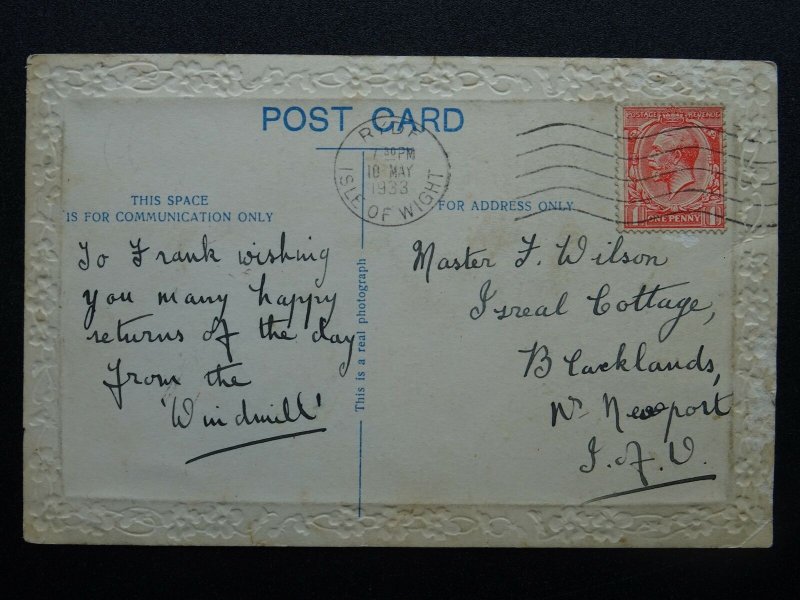 POST CARD
RYDE
7 30 PM
10 MAY
1933
ISLE OF WIGHT
POSTAGE REVENUE
1 ONE PENNY 1
THIS SPACE
IS FOR COMMUNICATION ONLY
To Frank wishing
you many happy
returns of the day
from the
'Windmill'
This is a real photograph
FOR ADDRESS ONLY
Master F. Wilson
Isreal Cottage,
Blacklands,
Nr Newport
I.of.W.